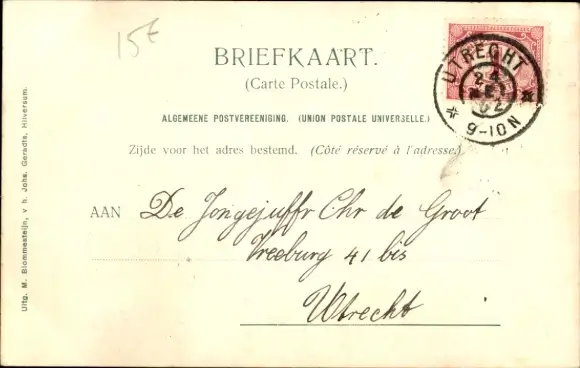 15€
BRIEFKAART.
(Carte Postale.)
ALGEMEENE POSTVEREENIGING. (UNION POSTALE UNIVERSELLE.)
Zijde voor het adres bestemd. (Côté réservé à l'adresse.)
AAN De Jongejuffr Chr de Groot
Vreeburg 41 bis
Utrecht
UTRECHT
24
02
9-10N
Uitg. M. Blommesteijn, v h. Johs. Geradts, Hilversum.